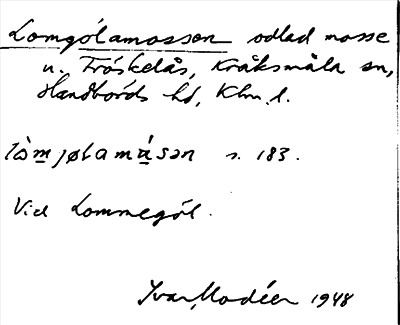 Lomgölamossen odlad mosse
u. Fröskelås, Kråksmåla sn,
Handbörds hd, Klm. l.
lòm̲jøLamá̲sən s. 183.
Vid Lommegöl.
Ivar Modéer 1948